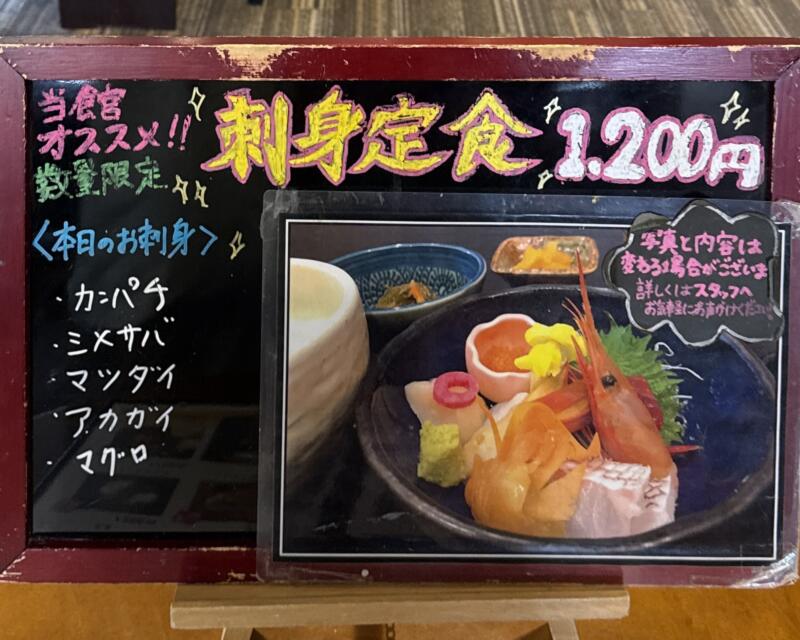 当食宮
オススメ!!
数量限定
刺身定食
1.200円
〈本日のお刺身〉
・カンパチ
・シメサバ
・マツダイ
・アカガイ
・マグロ
写真と内容は
変わる場合がございま
詳しくはスタッフへ
お気軽にお声がけください